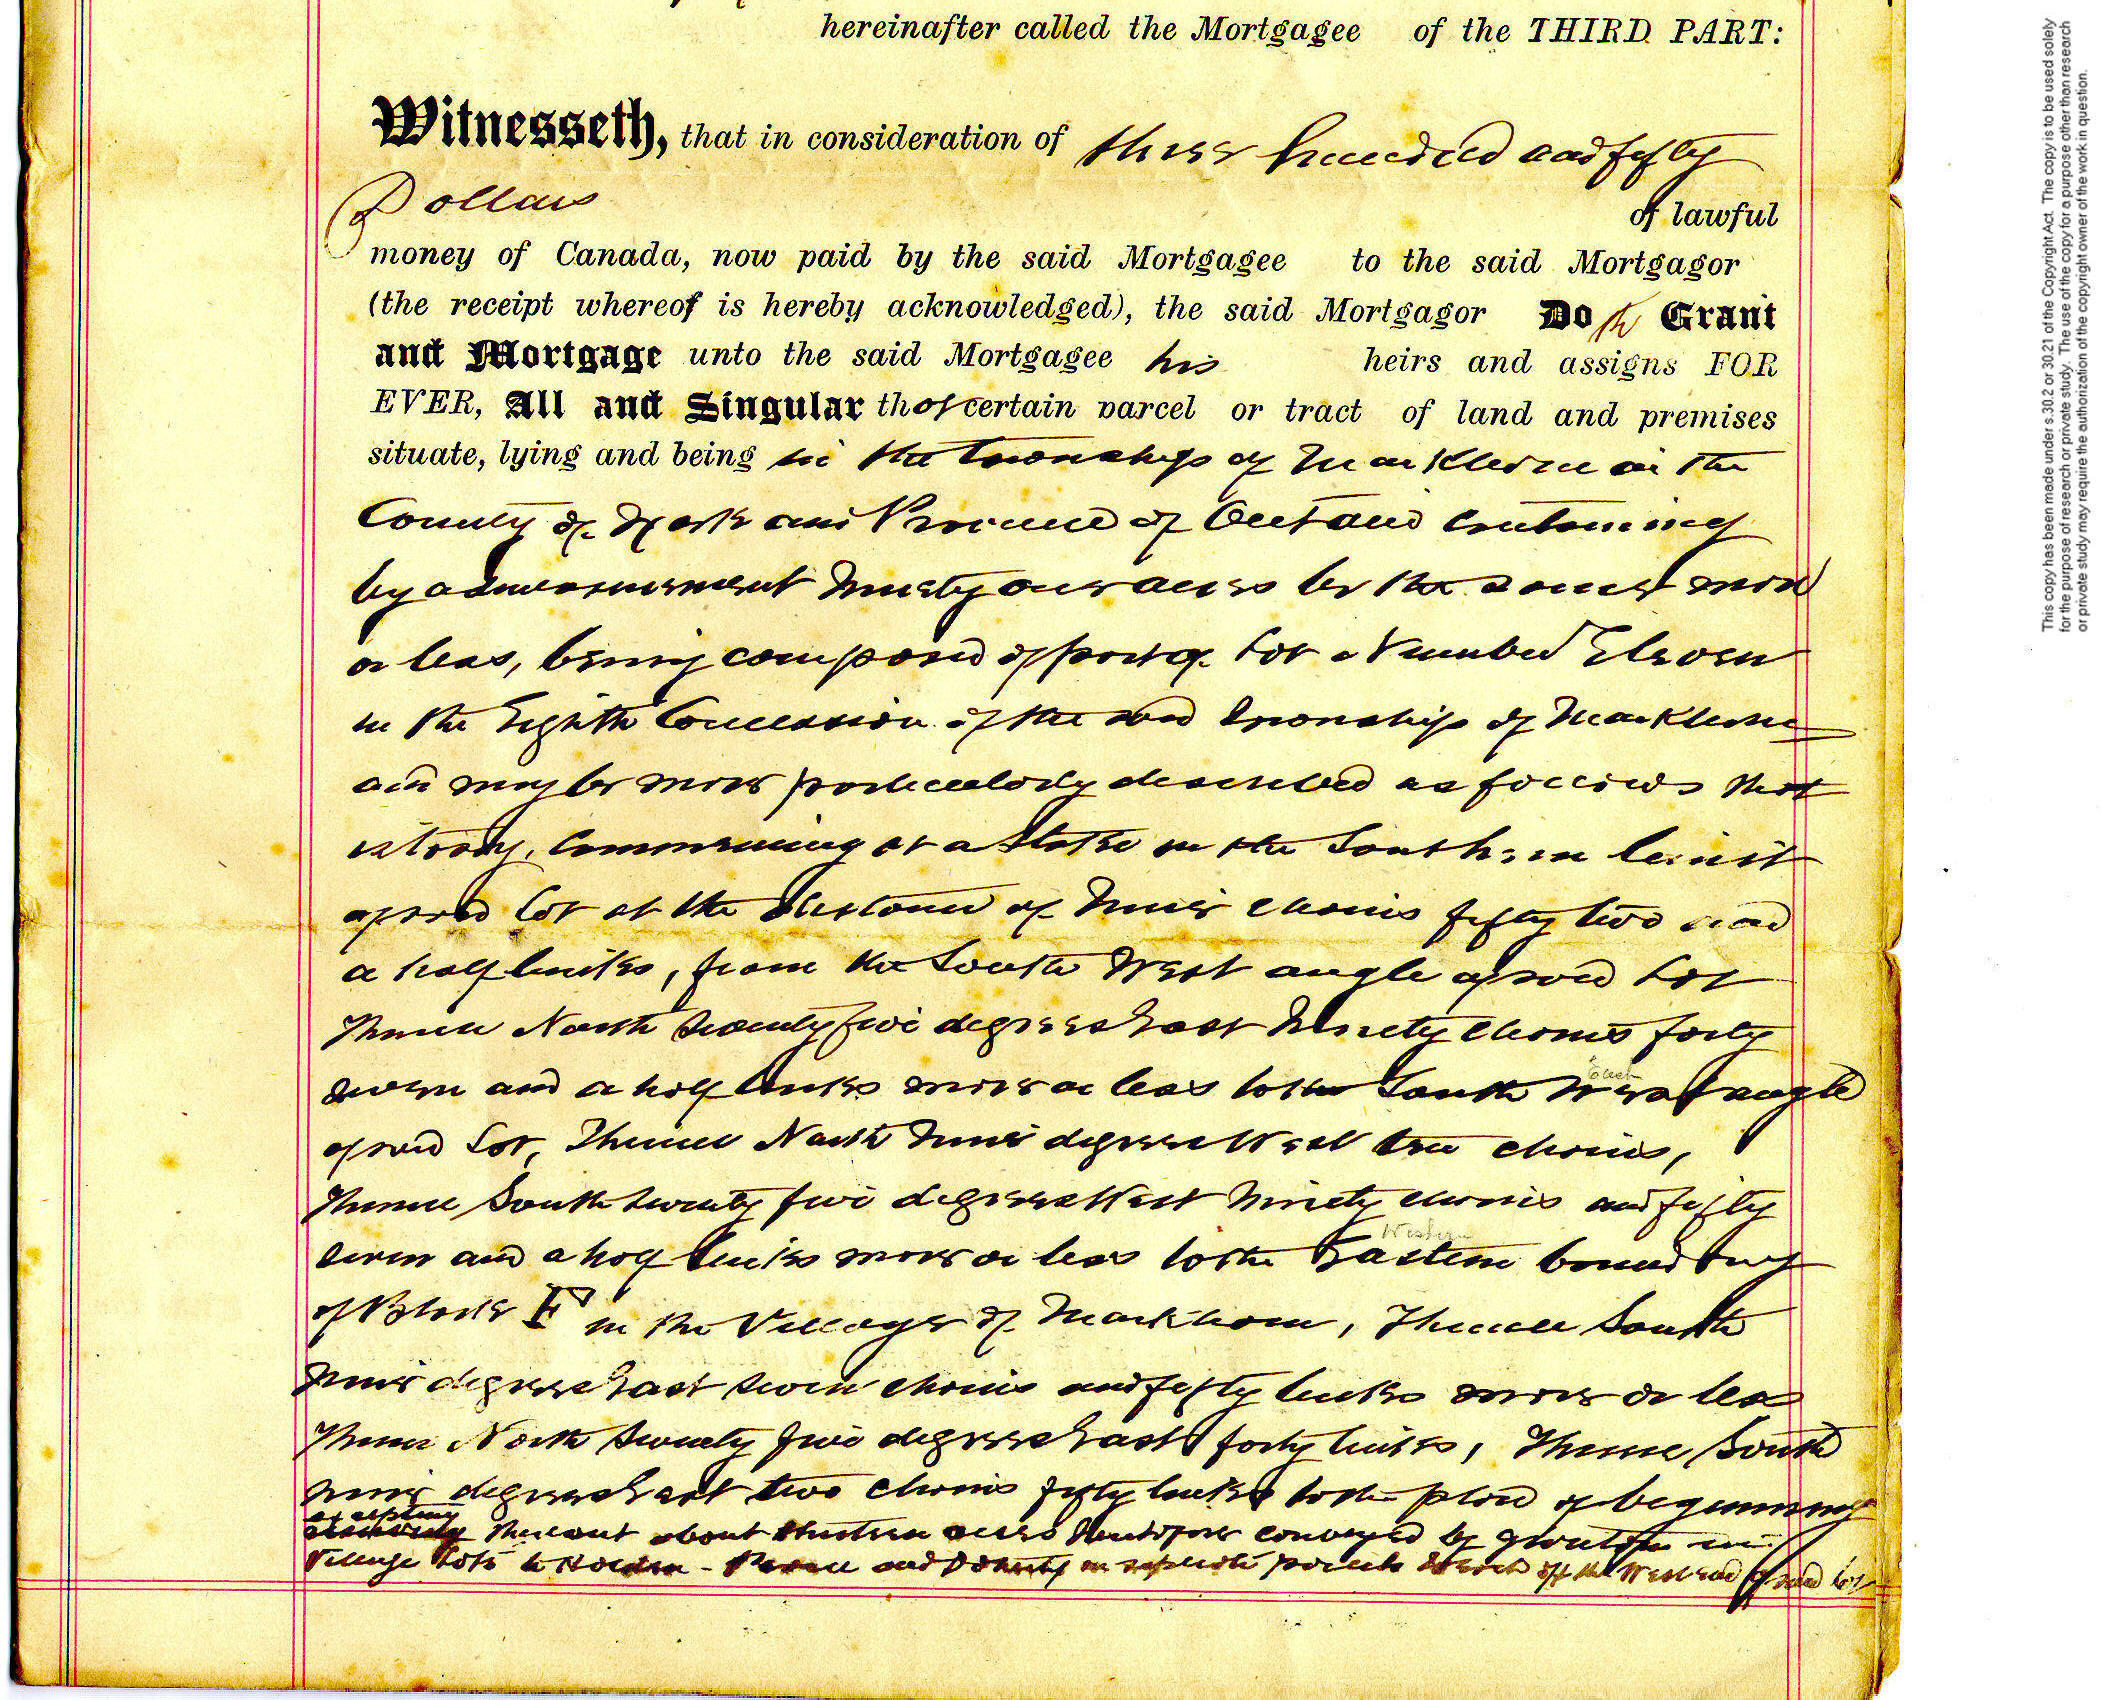 hereinafter called the Mortgagee of the THIRD PART:
Witnesseth, that in consideration of three hundred and fifty
Dollars of lawful
money of Canada, now paid by the said Mortgagee to the said Mortgagor
(the receipt whereof is hereby acknowledged), the said Mortgagor Doth Grant
and Mortgage unto the said Mortgagee his heirs and assigns FOR
EVER, All and Singular that certain parcel or tract of land and premises
situate, lying and being in the Township of Markham in the
County of York and Province of Ontario containing
by admeasurement Ninety one acres be the same more
or less, being composed of part of Lot Number Eleven
in the Eighth Concession of the said Township of Markham
and may be more particularly described as follows that
is to say, Commencing at a Stake in the Southern limit
of said Lot at the distance of Nine chains fifty two and
a half links, from the South West angle of said Lot
Thence North Seventy five degrees East Ninety chains forty
seven and a half links more or less to the South West angle
East
of said Lot, Thence North Nine degrees West ten chains,
Thence South Seventy five degrees West Ninety chains and fifty
seven and a half links more or less to the Eastern boundary
Western
of Block F in the Village of Markham, Thence South
Nine degrees East seven chains and fifty links more or less
Thence North Seventy five degrees East forty links, Thence South
nine degrees East two chains fifty links to the place of beginning
excepting thereout about thirteen acres heretofore conveyed by grantor in
Village Lots to and in separate parcels off the West end of said Lot
This copy has been made under s.30.2 or 30.21 of the Copyright Act. The copy is to be used solely
for the purpose of research or private study. The use of the copy for a purpose other than research
or private study may require the authorization of the copyright owner of the work in question.